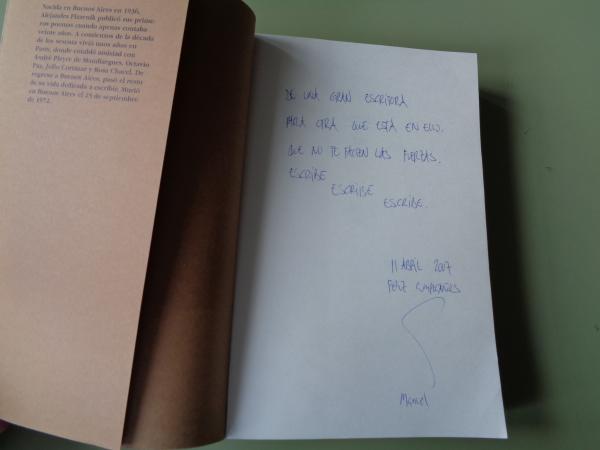 Nacida en Buenos Aires en 1936,
Alejandra Pizarnik publicó sus prime-
ros poemas cuando apenas contaba
veinte años. A comienzos de la década
de los sesenta vivió unos años en
París, donde entabló amistad con
André Pieyre de Mandiargues, Octavio
Paz, Julio Cortázar y Rosa Chacel. De
regreso a Buenos Aires, pasó el resto
de su vida dedicada a escribir. Murió
en Buenos Aires el 25 de septiembre
de 1972.
DE UNA GRAN ESCRITORA
PARA OTRA QUE ESTÁ EN ELLO.
QUE NO TE FALTEN LAS FUERZAS.
ESCRIBE
ESCRIBE
ESCRIBE.
11 ABRIL 2007
FELIZ CUMPLEAÑOS
Manuel